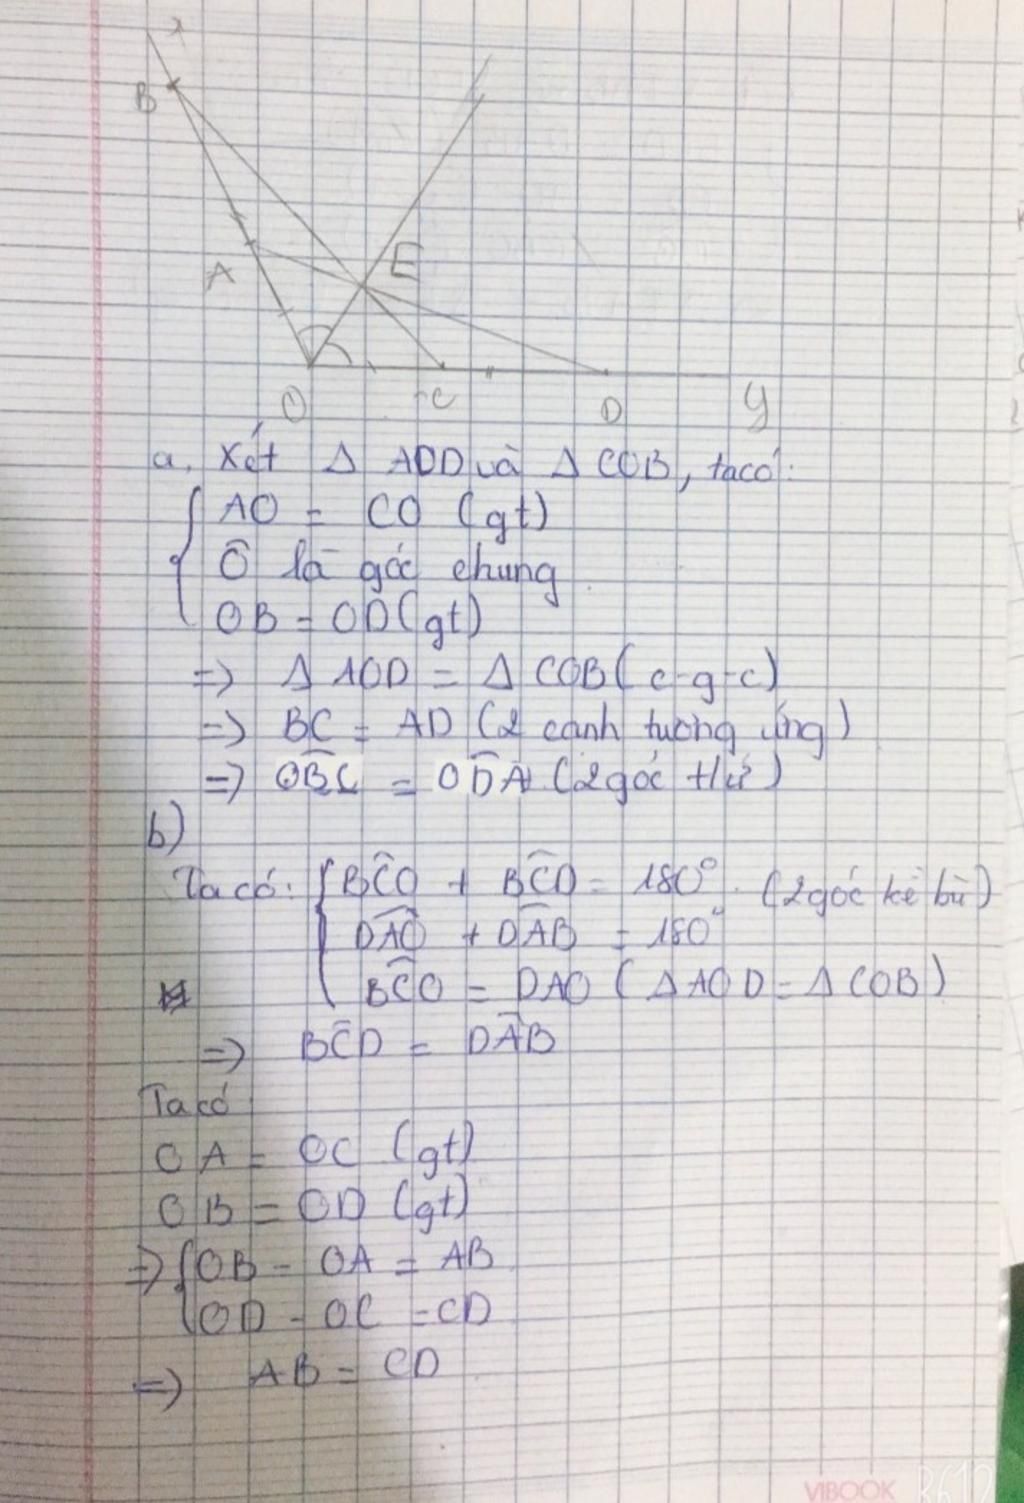 x
B
A
E
O
C
D
y
a, Xét Δ AOD và Δ COB, ta có:
AO = CO (gt)
Ô là góc chung
OB = OD (gt)
=> Δ AOD = Δ COB (c-g-c)
=> BC = AD (2 cạnh tương ứng)
=> OB̂C = OD̂A (2 góc t/ứ)
b)
Ta có: BĈO + BĈD = 180° (2 góc kề bù)
DÂO + DÂB = 180°
BĈO = DAO (Δ AOD = Δ COB)
=> BĈD = DÂB
Ta có
OA = OC (gt)
OB = OD (gt)
=> OB - OA = AB
OD - OC = CD
=> AB = CD
VIBOOK B612